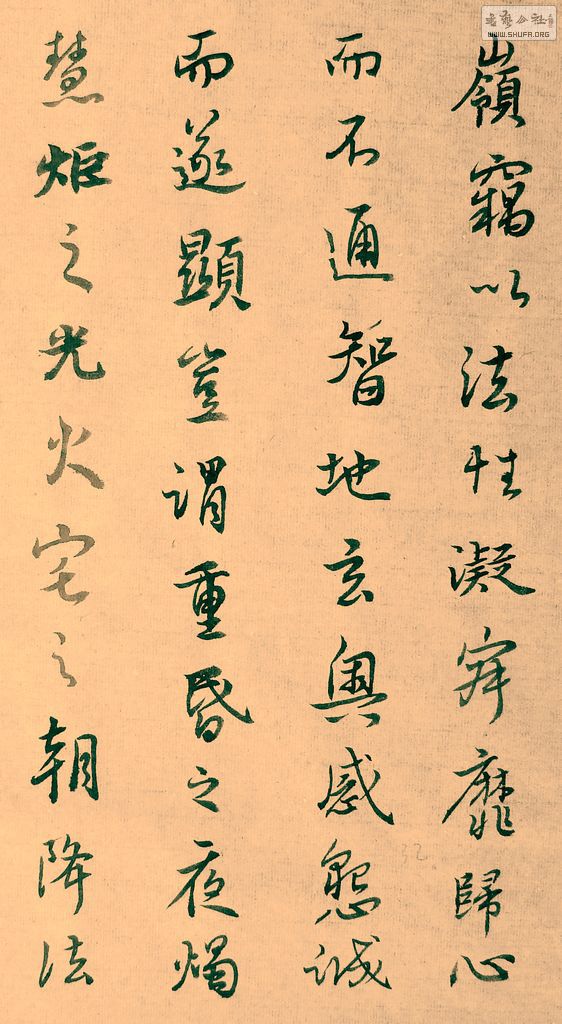 嶺竊以法性凝寂靡歸心
而不通智地玄奧感懇誠
而遂顯豈謂重昏之夜燭
慧炬之光火宅之朝降法
32
书法公社
WWW.SHUFA.ORG